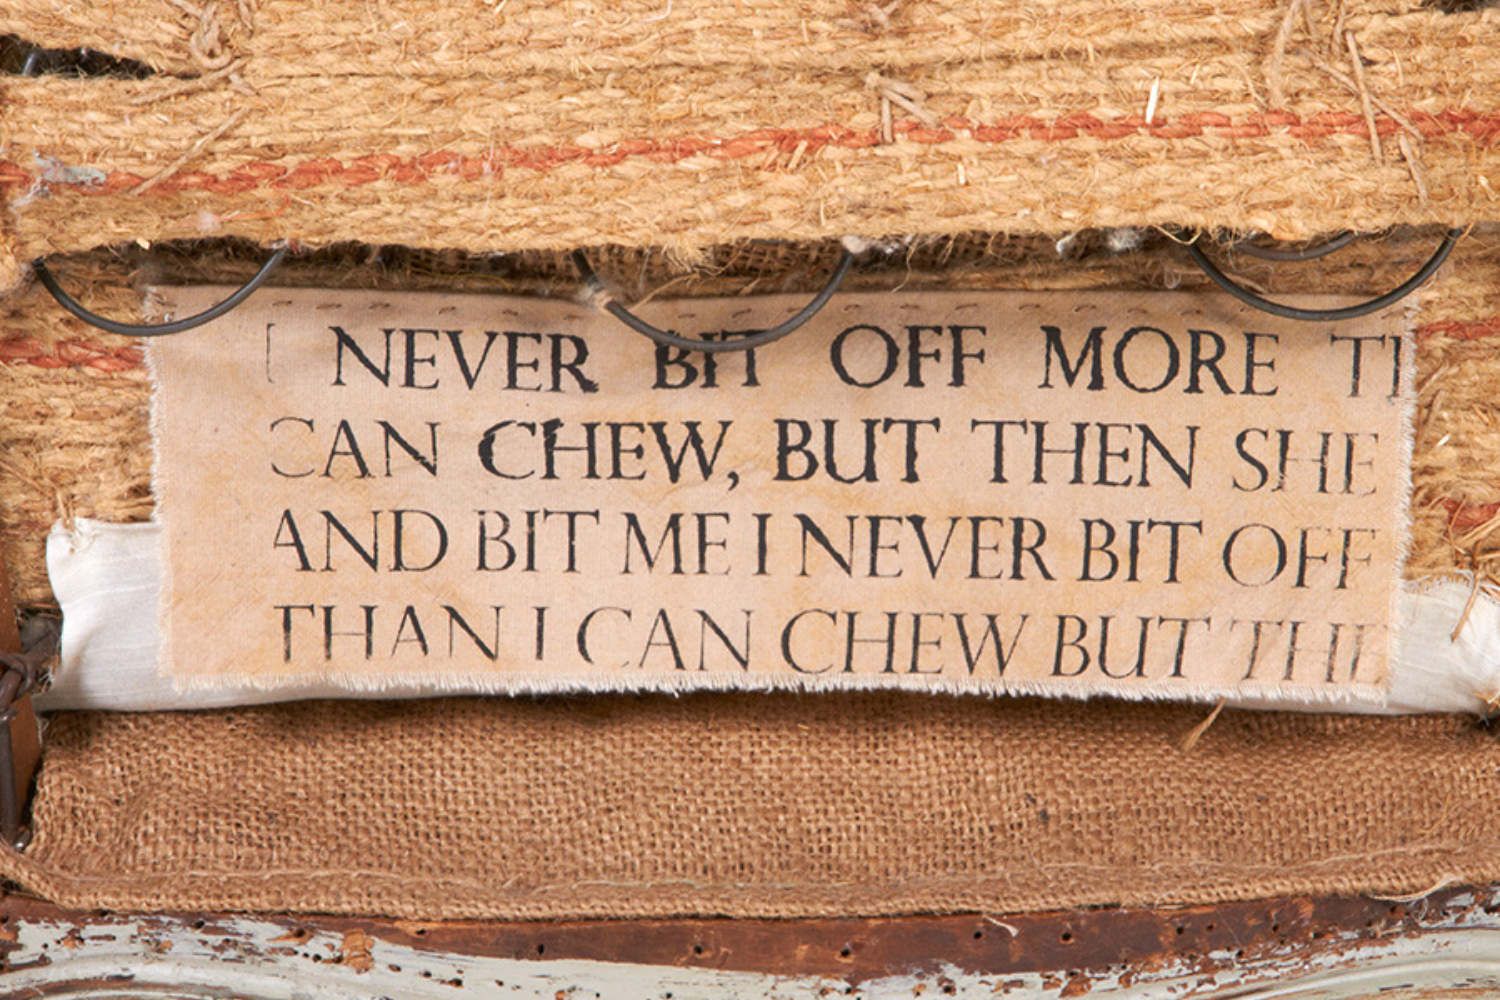 I NEVER BIT OFF MORE
CAN CHEW, BUT THEN SHE
AND BIT ME I NEVER BIT OFF
THAN I CAN CHEW BUT